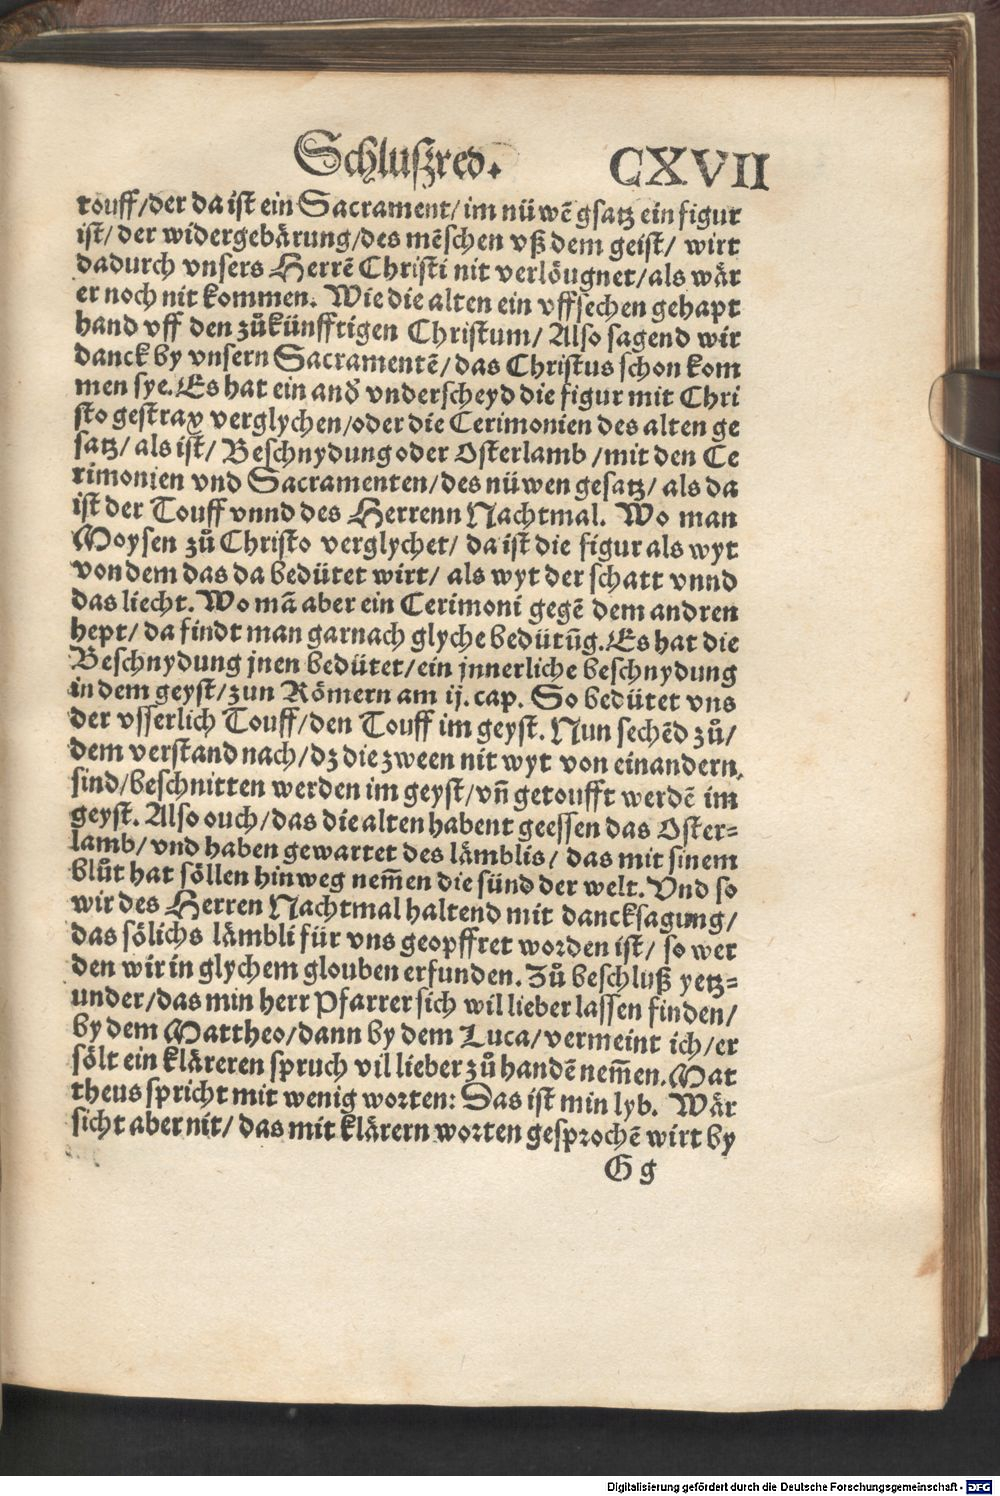 Schluſzred. CXVII
touff/der da iſt ein Sacrament/im nüwē gſatz ein figur
iſt/ der widergebärung/des mēſchen vß dem geiſt/ wirt
dadurch vnſers Herrē Chriſti nit verlöugnet/als wär
er noch nit kommen. Wie die alten ein vffſechen gehapt
hand vff den zůkünfftigen Chriſtum/ Alſo ſagend wir
danck by vnſern Sacramentē/das Chriſtus ſchon kom
men ſye. Es hat ein anď vnderſcheyd die figur mit Chri
ſto geſtrax verglychen/oder die Cerimonien des alten ge
ſatz/ als iſt/ Beſchnydung oder Oſterlamb /mit den Ce
rimonien vnd Sacramenten/des nüwen geſatz/ als da
iſt der Touff vnnd des Herrenn Nachtmal. Wo man
Moyſen zů Chriſto verglychet/ da iſt die figur als wyt
von dem das da bedütet wirt/ als wyt der ſchatt vnnd
das liecht. Wo mā aber ein Cerimoni gegē dem andren
hept/ da findt man gar nach glyche bedütūg. Es hat die
Beſchnydung jnen bedütet/ein jnnerliche beſchnydung
in dem geyſt/zun Römern am ij. cap. So bedütet vns
der vſſerlich Touff/den Touff im geyſt. Nun ſechēd zů/
dem verſtand nach/dz die zween nit wyt von einandern
ſind/beſchnitten werden im geyſt/vn̄ getoufft werdē im
geyſt. Alſo ouch/das die alten habent geeſſen das Oſter⸗
lamb/vnd haben gewartet des lämblis/ das mit ſinem
blůt hat ſöllen hinweg nem̄en die ſünd der welt. Vnd ſo
wir des Herren Nachtmal haltend mit danckſagung/
das ſölichs lämbli für vns geopffret worden iſt/ ſo wer
den wir in glychem glouben erfunden. Zů beſchluß yetz⸗
under/das min herr Pfarrer ſich wil lieber laſſen finden/
by dem Mattheo/dann by dem Luca/vermeint ich/er
ſölt ein kläreren ſpruch vil lieber zů handē nem̄en. Mat
theus ſpricht mit wenig worten: Das iſt min lyb. Wär
ſicht aber nit/ das mit klärern worten geſprochē wirt by
G g
Digitalisierung gefördert durch die Deutsche Forschungsgemeinschaft - DFG